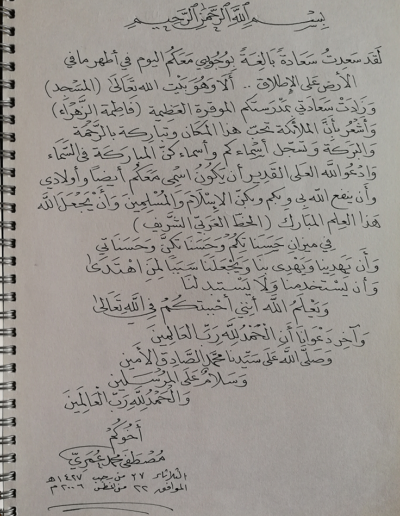 بِسْمِ اللَّهِ الرَّحْمَنِ الرَّحِيمِ
لقد سعدت سعادة بالغة بوجودي معكم اليوم في أطهر ما في
الأرض على الإطلاق .. ألا وهو بيت الله تعالى (المسجد)
وزادت سعادتي بمدرستكم الموقرة العظيمة (فاطمة الزهراء)
وأشعر بأن الملائكة تحب هذا المكان وتباركه بالرحمة
والبركة وتسجل أسماءكم وأسماءكن المباركة في السماء
وأدعو الله العلي القدير أن يكون اسمي معكم أيضا وأولادي
وأن ينفع الله بي وبكم وبكن الإسلام والمسلمين وأن يجعل الله
هذا العلم المبارك (الخط العربي الشريف)
في ميزان حسناتكم وحسناتكن وحسناتي
وأن يهدينا ويهدي بنا ويجعلنا سببا لمن اهتدى
وأن يستخدمنا ولا يستبدلنا
ويعلم الله أنني أحببتكم في الله تعالى
وآخر دعوانا أن الحمد لله رب العالمين
وصلى الله على سيدنا محمد الصادق الأمين
وسلام على المرسلين
والحمد لله رب العالمين
أخوكم
مصطفى محمد عمري
الثلاثاء ٢٧ من رجب ١٤٢٧ هـ
الموافق ٢٢ من أغسطس ٢٠٠٦ م